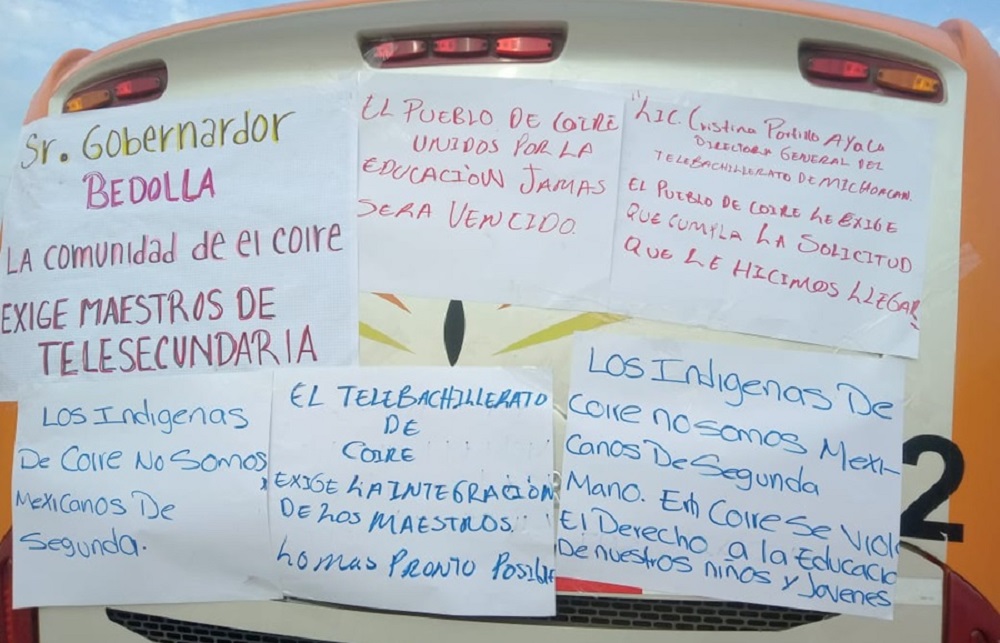 Sr. GOBERNARDOR
BEDOLLA
LA comunidad de el coire
EXIGE MAESTROS DE
TELESECUNDARIA
EL PUEBLO DE COIRE
UNIDOS POR LA
EDUCACIÓN JAMAS
SERA VENCIDO.
LIC. Cristina Portillo Ayala
DIRECTORA GENERAL DEL
TELEBACHILLERATO DE MICHOACAN.
EL PUEBLO DE COIRE LE EXIGE
QUE CUMPLA LA SOLICITUD
QUE LE HICIMOS LLEGAR
Los Indigenas
De Coire No Somos
Mexicanos De
Segunda.
EL TELEBACHILLERATO
DE
COIRE
EXIGE LA INTEGRACIÓN
DE LOS MAESTROS
Lo mas PRONTO POSIBLE
Los Indigenas De
Coire no somos Mexi-
Canos De Segunda
Mano. En Coire se Viola
El Derecho a la Educacio
De nuestros niños y Jovenes
2